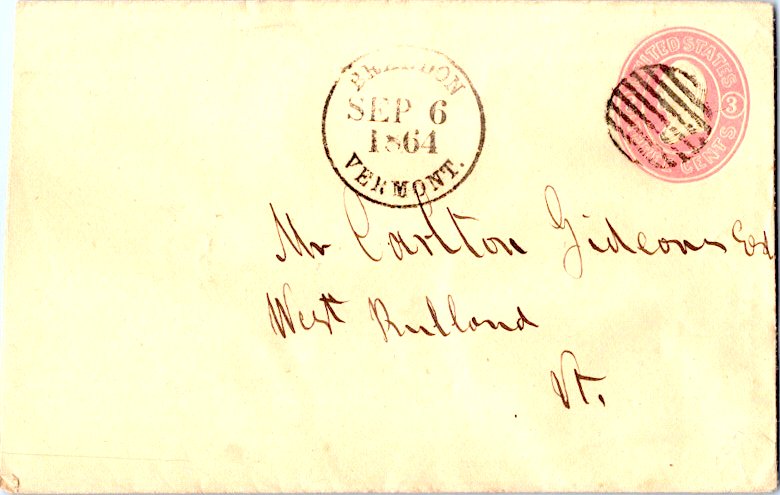 BRANDON
SEP 6
1864
VERMONT.
UNITED STATES
3
CENTS
Mr Carlton Gideons Esq
West Rutland
Vt.